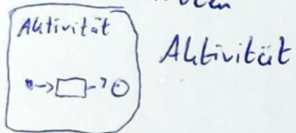 Aktivität
Aktivität